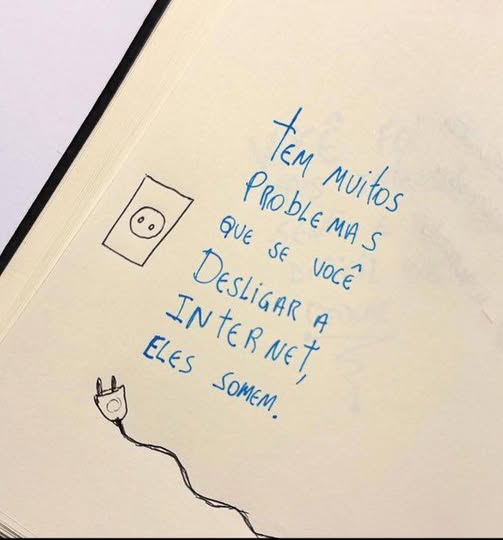 tEM MUitOS
PROBLEMAS
QUE SE VOCÊ
DESLIGAR A
INtERNEt,
ELES SOMEM.